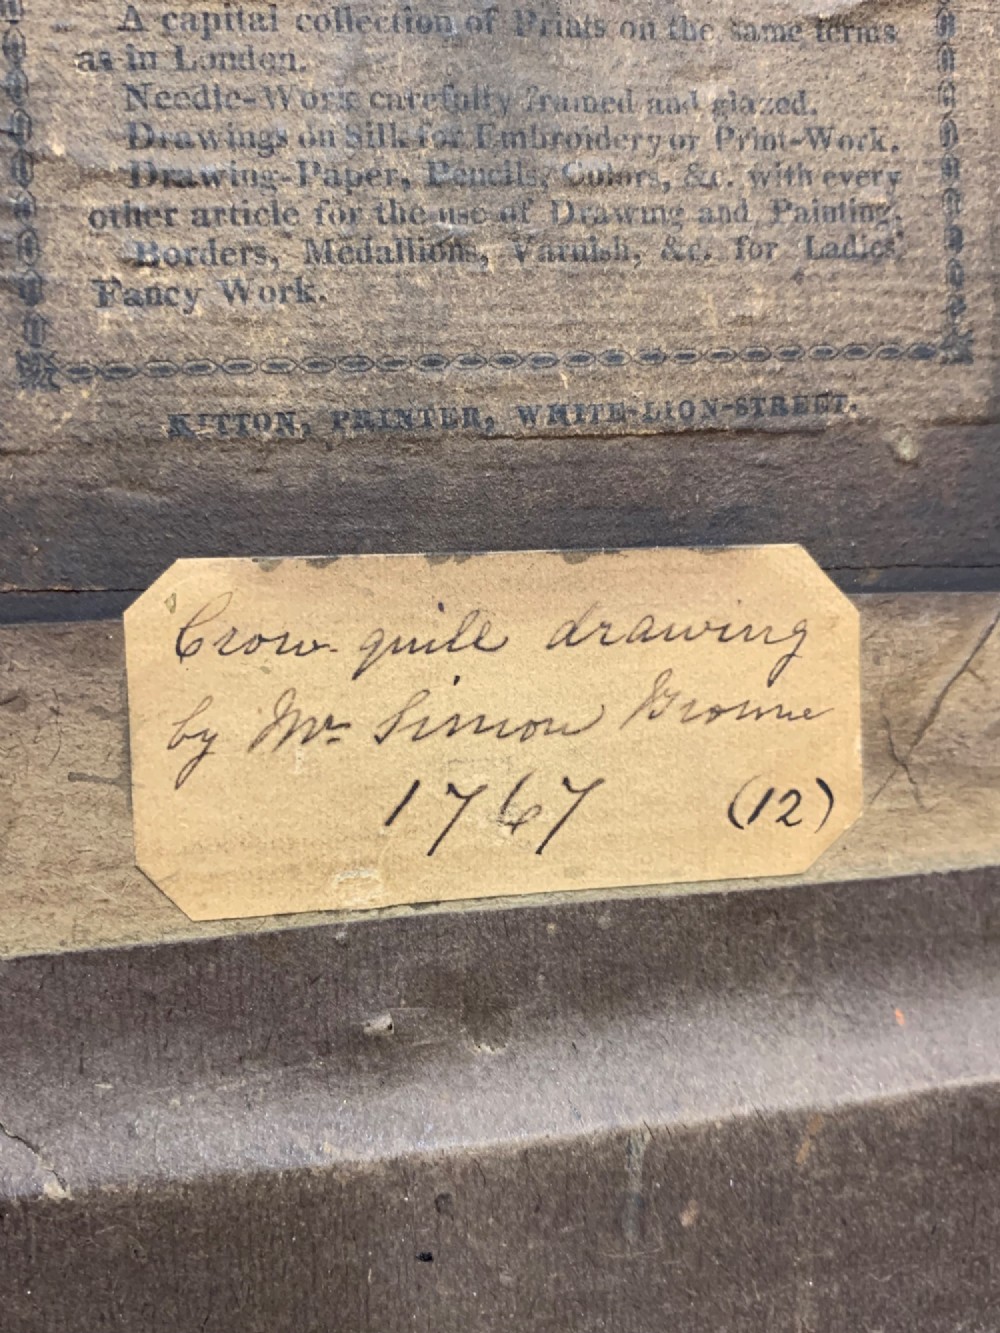 A capital collection of Prints on the same terms
as in London.
Needle-Work carefully framed and glazed.
Drawings on Silk for Embroidery or Print-Work.
Drawing-Paper, Pencils, Colors, &c. with every
other article for the use of Drawing and Painting.
Borders, Medallions, Varnish, &c. for Ladies'
Fancy Work.
KITTON, PRINTER, WHITE-LION-STREET.
Crow-quill drawing
by Mr Simon Browne
1767 (12)